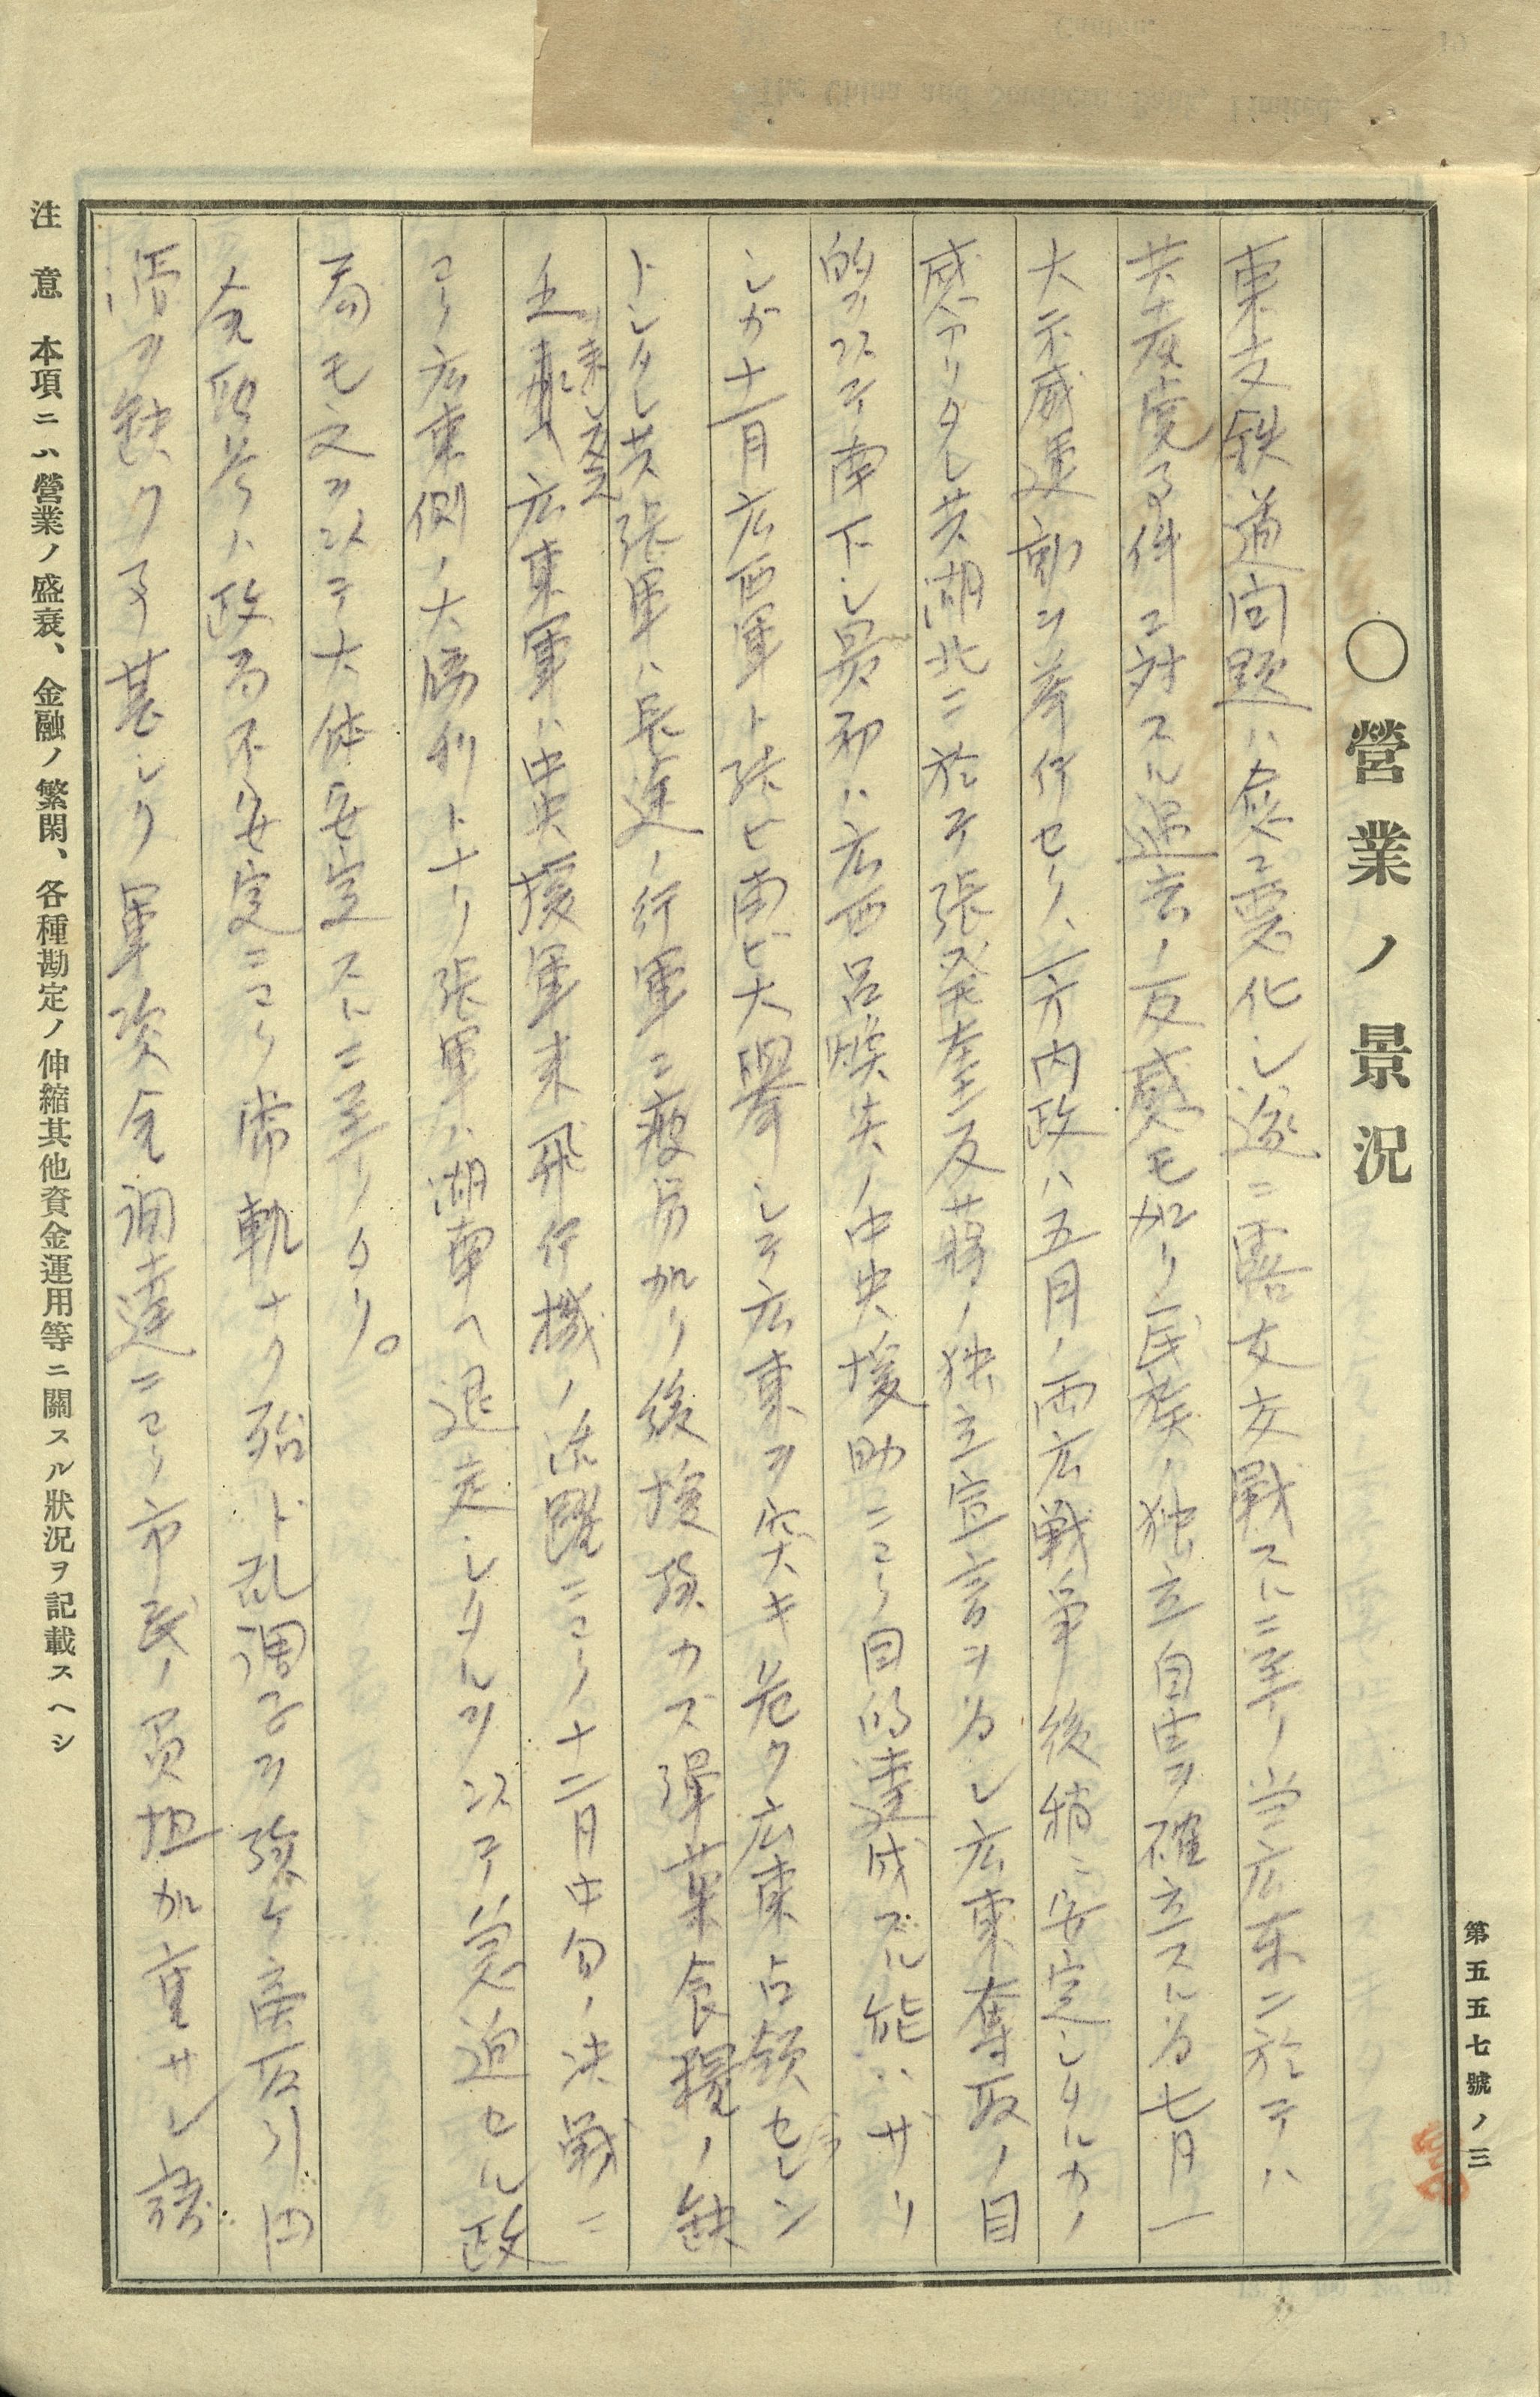 第五五七號ノ三
○營業ノ景況
東支鉄道問題ハ愈々悪化シ遂ニ露支交戦スルニ至リ当広東ニ於テハ
共産党事件ニ対スル過去ノ反感モ加リ民族ノ独立自由ヲ確立スル為七月一
大示威運動ヲ挙行セリ、一方内政ハ五月ノ両広戦争後稍々安定シタルカノ
感アリタレ共湖北ニ於テ張発奎反蒋ノ独立宣言ヲ為シ広東奪取ノ目
的ヲ以テ南下シ最初ハ広西呂煥炎ノ中央援助ニヨリ目的達成スル能ハザリ
シガ十一月広西軍ト結ビ再ビ大挙シテ広東ヲ突キ危ク広東占領セラレン
トシタレ共張軍ハ長途ノ行軍ニ疲労加リ後援続カズ弾薬食糧ノ缺
乏ヲ来シ広東軍ハ中央援軍来飛行機ノ活躍ニヨリ十二月中旬ノ決戦ニ
ヨリ広東側ノ大勝利トナリ張軍ハ湖南ヘ退走シタルヲ以テ急迫セル政
局モ之ヲ以テ大体安定スルニ至リタリ。
金融界ハ政局不安定ニヨリ常軌ナク殆ト乱調子ヲ続ケ商取引円
滑ヲ缺ク事甚シク軍資金調達ニヨリ市民ノ負担加重サレ諸
注意 本項ニハ營業ノ盛衰、金融ノ繁閑、各種勘定ノ伸縮其他資金運用等ニ關スル狀況ヲ記載スヘシ